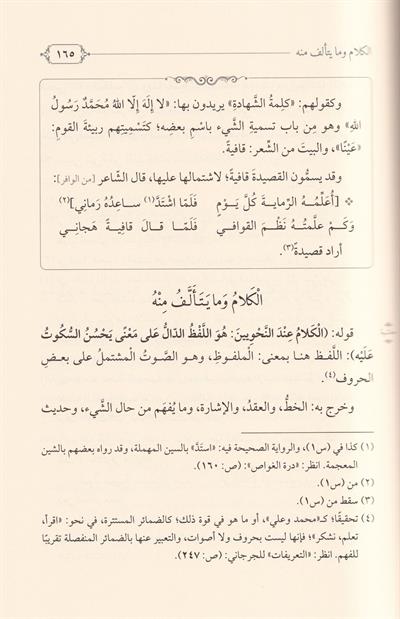 الكلام وما يتألف منه
١٦٥
وكقولهم: «كلِمةُ الشَّهادةِ» يريدون بها: «لا إِلَهَ إِلَّا اللهُ مُحَمَّدٌ رَسُولُ
اللهِ» وهو مِن باب تسميةِ الشَّيء باسْمِ بعضِه؛ كتَسْمِيتِهم ربيئةَ القومِ:
«عَيْنًا»، والبيتَ من الشِّعر: قافيةً.
وقد يسمُّون القصيدةَ قافيةً؛ لاشتمالها عليها، قال الشَّاعر [من الوافر]:
[أُعَلِّمُهُ الرِّمايةَ كُلَّ يَوْمٍ فَلَمَّا اشْتَدَّ(١) ساعِدُهُ رَماني](٢)
وَكَم علَّمتُهُ نَظْمَ القوافي فَلَمَّا قالَ قافيةً هَجاني
أراد قصيدةً(٣).
الْكَلَامُ وَمَا يَتَأَلَّفُ مِنْهُ
قوله: (الْكَلَامُ عِنْدَ النَّحْوِيِّينَ: هُوَ اللَّفْظُ الدَّالُّ عَلى مَعْنًى يَحْسُنُ السُّكُوتُ
عَلَيْهِ): اللَّفظ هنا بمعنى: الملفوظِ، وهو الصَّوتُ المشتملُ على بعضِ
الحروف(٤).
وخرج به: الخطُّ، والعقدُ، والإشارة، وما يُفهَم من حال الشَّيء، وحديث
(١) كذا في (س١)، والرواية الصحيحة فيه: «استَدَّ» بالسين المهملة، وقد رواه بعضهم بالشين
المعجمة. انظر: «درة الغواص»: (ص: ١٦٠).
(٢) من (س١).
(٣) سقط من (س١).
(٤) تحقيقًا؛ كـ«محمد وعلي»، أو ما هو في قوة ذلك؛ كالضمائر المستترة، في نحو: «اقرأ،
تعلم، نشكر»؛ فإنها ليست بحروف ولا أصوات، والتعبير عنها بالضمائر المنفصلة تقريبًا
للفهم. انظر: «التعريفات» للجرجاني: (ص: ٢٤٧).